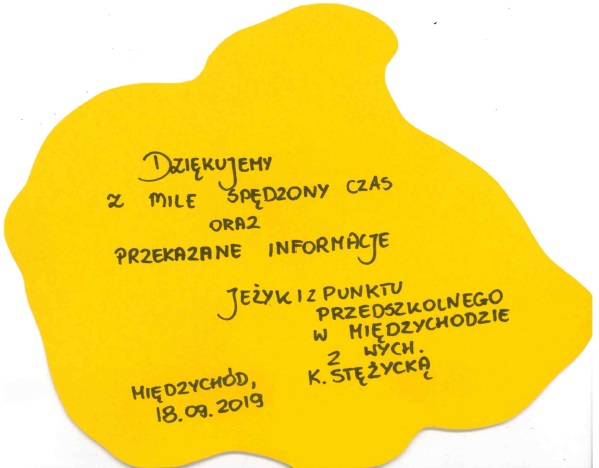 DZIĘKUJEMY
Z MILE SPĘDZONY CZAS
ORAZ
PRZEKAZANE INFORMACJE
JEŻYKI Z PUNKTU
PRZEDSZKOLNEGO
W MIĘDZYCHODZIE
Z WYCH.
K. STĘŻYCKĄ
MIĘDZYCHÓD,
18.09.2019